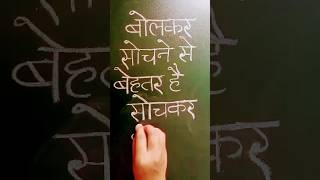 बोलकर
सोचने से
बेहतर है
सोचकर